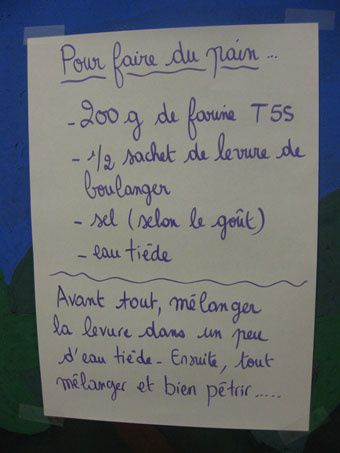 Pour faire du pain...
- 200 g de farine T55
- 1/2 sachet de levure de
boulanger
- sel (selon le goût)
- eau tiède
Avant tout, mélanger
la levure dans un peu
d'eau tiède - Ensuite, tout
mélanger et bien pétrir.....